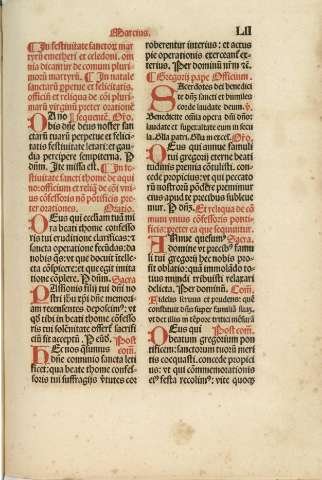 Marcius.
LII
¶ In festiuitate sanctoꝝ mar
tyrū emeterij et celedoni. om
nia dicant̄ de comuni pluri
moꝝ martyrū. ¶ In natale
sanctaꝝ ꝑpetue et felicitatis.
officiū et reliqua de cōi pluri
marū virginū preter orationē
DA no ¶ sequentē. Oꝛo.
bis dn̄e deus noster san
ctaꝝ tuaꝝ perpetue et felici
tatis festiuitate letari: et gau
dia percipere sempiterna. P
dn̄m. Ite missa est. ¶ In fe
stiuitate sancti thome de aqui
no: officium et reliq̄ de cōi vni
us cōfessoris nō pontificis pre
ter orationes. Oratio.
DEus qui ecclesiam tuā mi
ra beati thome confesso
ris tui eruditione clarificas: et
sancta operatione fecūdas: da
nobis q̄s: et que docuit itelle
cta cōspicere: et que egit imita
tione cōplere. P dn̄m. Sacra
PAssionis filij tui dn̄i no
stri ihū xp̄i dn̄e memori
am recensentes deposcim⁹: vt
q̄d tibi in beati thome confesso
ris tui solēnitate offert̄ sacrifi
ciū sit acceptū. P eūdē. Post
HEc nos q̄sumus com̄.
dn̄e cominio sancta leti
ficet: qua beate thome confes
soris tui suffragijs v̄tutes cor
roborentur interius: et actus
pie operationis exerceant̄ ex
terius. Per dominū nr̄m ꝛc̄.
¶ Gregorij pape Officium.
SAcerdotes dei benedici
te dn̄z sancti et humiles
corde laudate deum. ꝟ.
Benedicite omīa opera dn̄i dn̄o:
laudate et suꝑexaltate eum in secu
la. Gl̄ia patri. Gl̄ia in excel. Oꝛo.
DEus qui annue famuli
tui gregorij eterne beati
tudinis premia cōtulisti. con
cede propicius: vt qui peccato
rū nostroꝝ pōdere premimur
eius apud te precibus subleue
mur. P dn̄z. Et reliqua de cō
muni ynius cōfessoris pontifi
cis: preter ea que sequuntur.
ANnue quesum⁹ Sacra.
domine vt precib⁹ famu
li tui gregorij hec nobis pro
sit oblatio: quā immolādo to
tius mundi tribuisti relaxari
delicta. Per dominū. Com̄.
Fidelis seruus et prudens: quē
constituit dn̄s super familiā suā.
vt det illis in tēpore tritici mēsurā
DEus qui Post com̄.
beatum gregorium pon
tificem: sanctorum tuoꝝ meri
tis coequasti. concede propici
us: vt qui cōmemorationis
ei⁹ festa recolim⁹: vite quoq̄